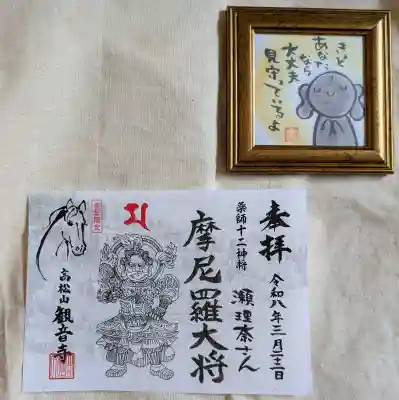 きっと
あなたなら
大丈夫
見守っているよ
奉拝
令和八年三月二十二日
薬師十二神将
瀬理奈さん
摩尼羅大将
高松山
観音寺